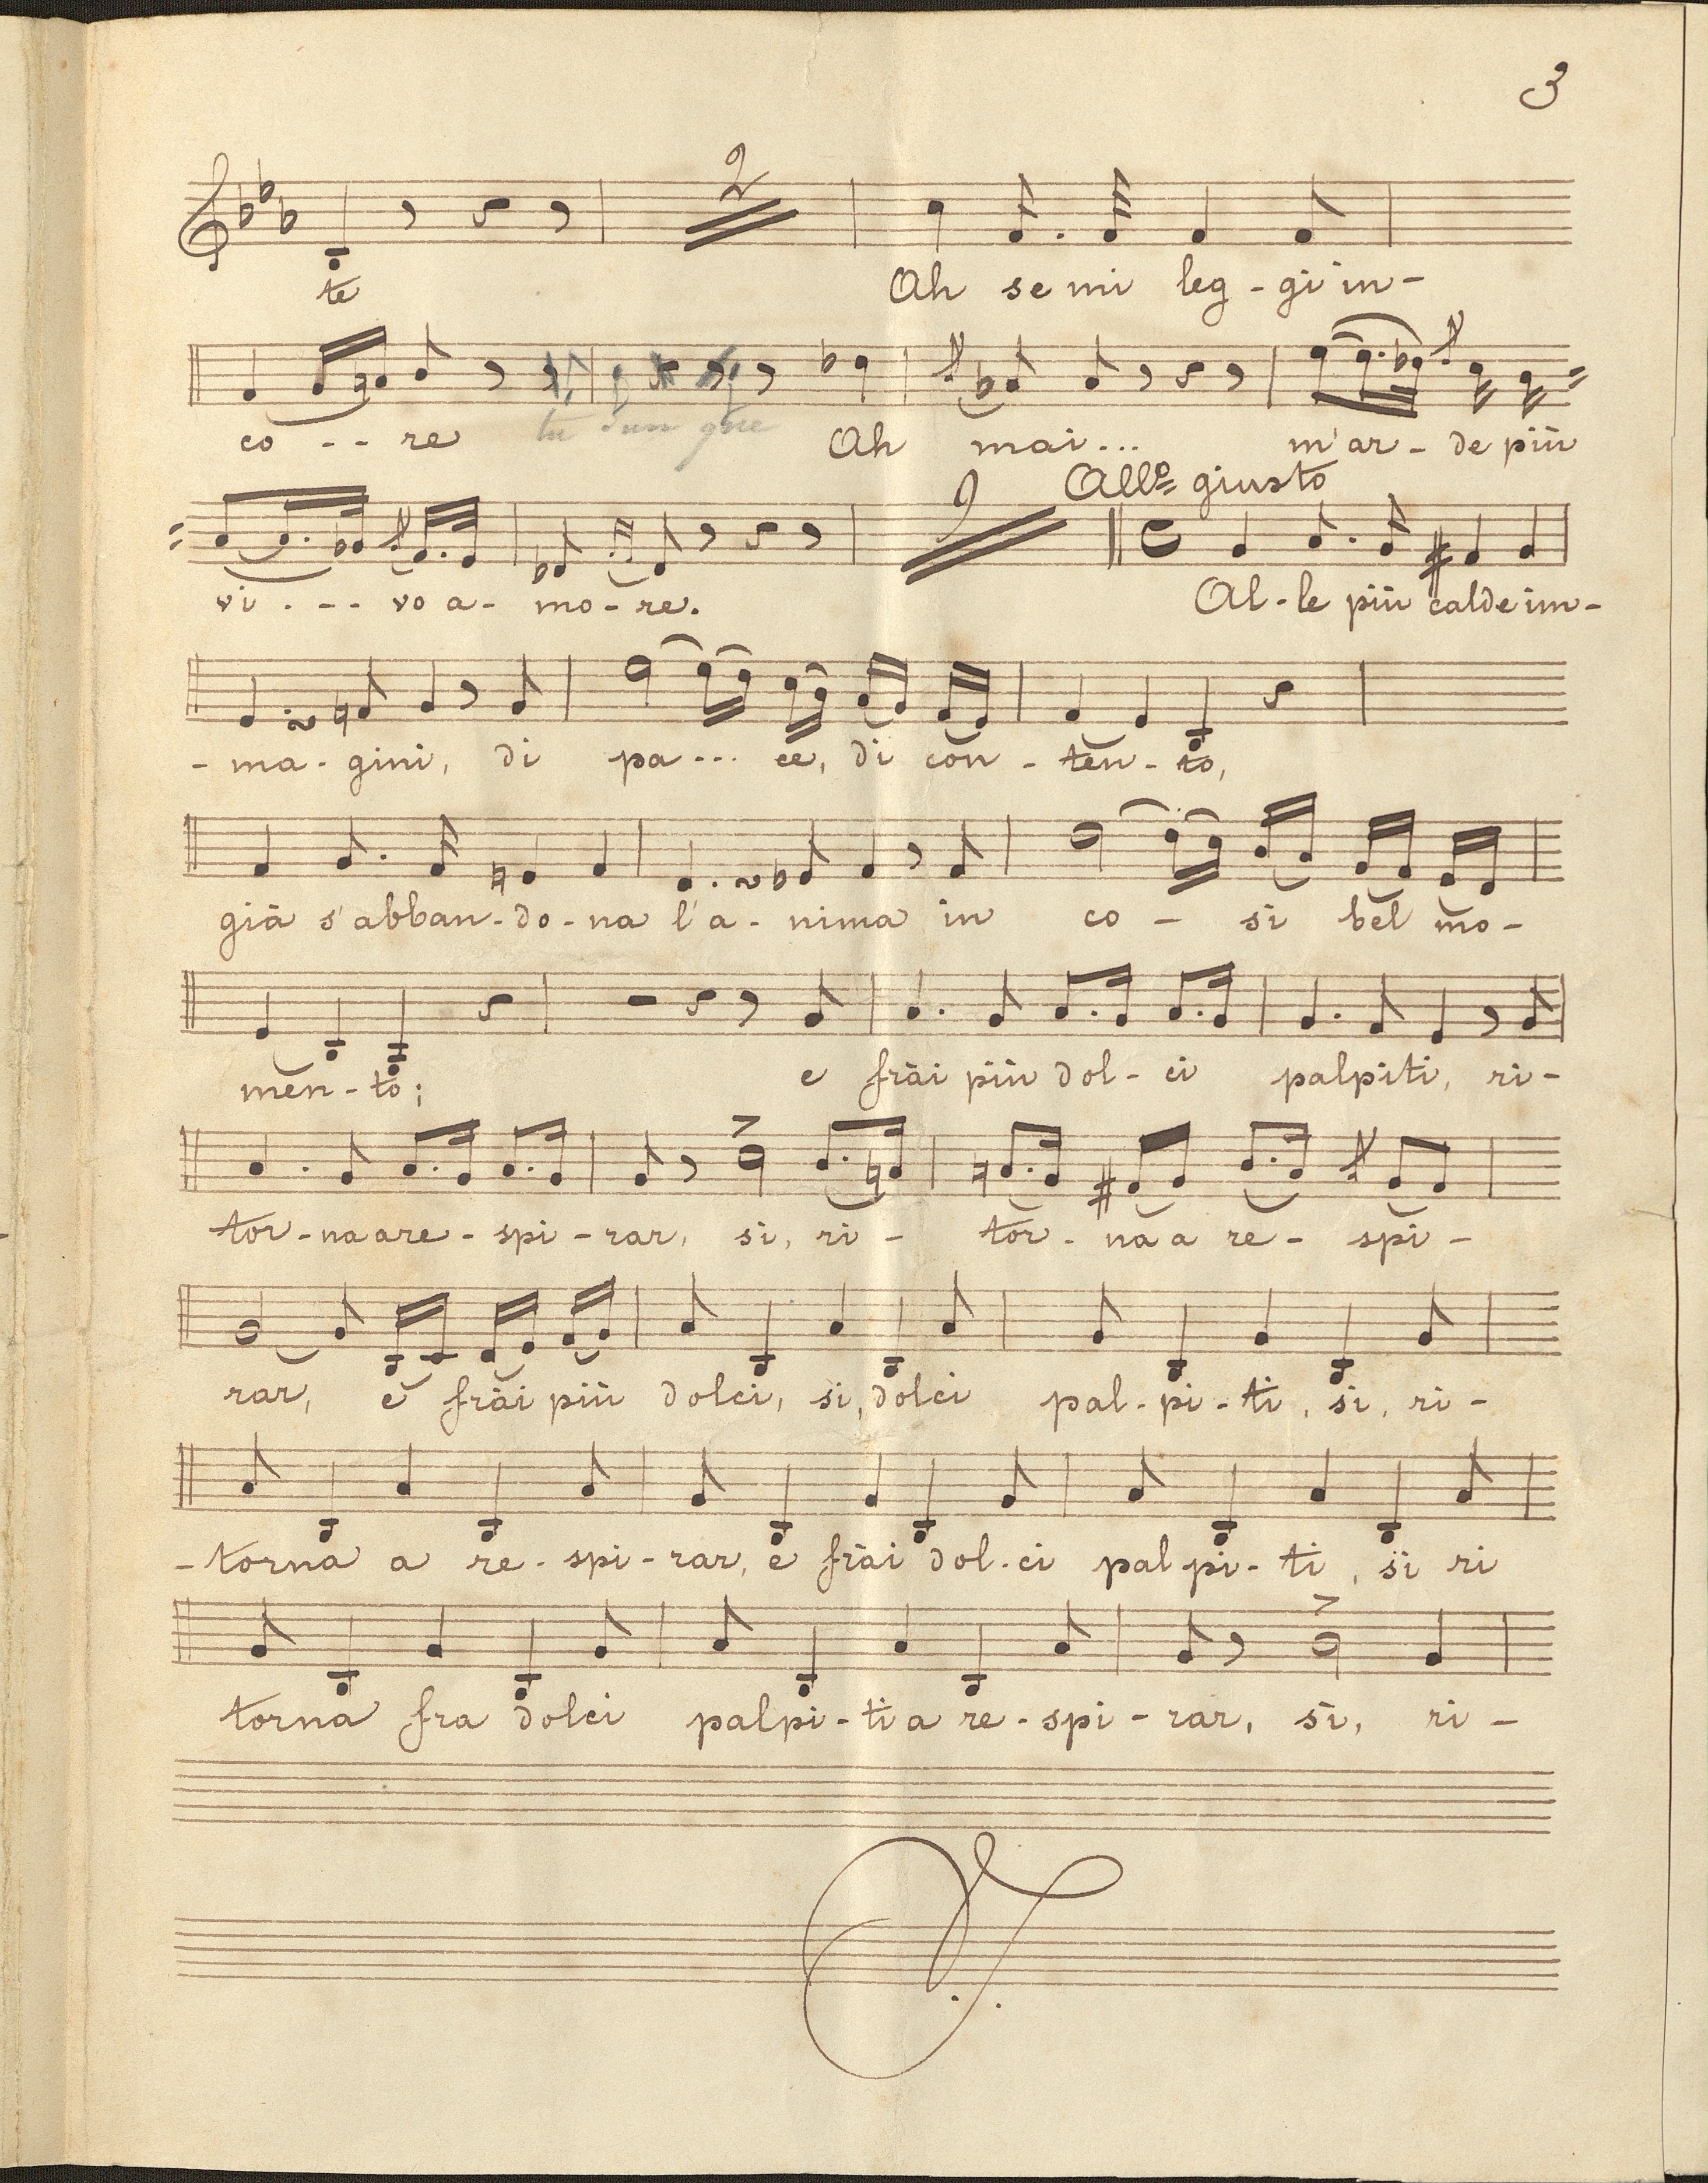 3
2
te Ah se mi leg - gi in -
co - - - re tu dun que Ah mai... m'ar - de più
All.º giusto
2
vi - - - vo a - mo - re. Al - le più calde im -
- ma - gini, di pa - - - ce, di con - ten - to,
già s'abban - do - na l'a - nima in co - si bel mo -
men - to; e frài più dol - ci palpiti, ri -
tor - na a re - spi - rar, si, ri - tor - na a re - spi -
rar, e frài più dolci, si, dolci pal - pi - ti, si, ri -
- torna a re - spi - rar, e frài dol - ci pal pi - ti, si ri
torna fra dolci palpi - ti a re - spi - rar, si, ri -